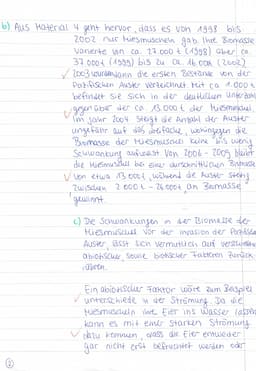 b) Aus Material 4 geht hervor, dass es von 1998 bis
2002 nur Miesmuscheln gab. Ihre Biomasse
variierte von ca. 27.000 t (1998) über ca.
37.000 t (1999) bis zu ca. 16.000 (2002)
2003 wurden dann die ersten Bestände von der
Pazifischen Auster verzeichnet. Mit ca. 1.000 t
befindet sie sich in der deutlichen
gegenüber der ca. 13.000 t der Miesmuschel.
Im Jahr 2004 steigt die Anzahl der Auster
ungefähr auf das dreifache, wohingegen die
Biomasse der Miesmuscheln keine bis wenig
Schwankung aufweist. Von 2006 - 2009 bleibt
die Miesmuschel bei einer durschnittlichen Biomasse
von etwa 13.000 t, während die Auster stetig
zwischen 2.000 t - 26.000 t, an Biomasse
gewinnt.
c) Die Schwankungen in der Biomasse der
Miesmuschel vor der Invasion der Pazifischen
Auster, lässt sich vermutlich auf verschiedene
abiotischer, sowie biotischer Faktoren zurück-
führen.
Ein abiotischer Faktor wäre zum Beispiel
unterschiede in der Strömung. Da die
Miesmuscheln ihre Eier ins Wasser lassen,
kann es mit einer starken Strömung
dazu kommen, dass die Eier entweder
gar nicht erst befruchtet werden oder